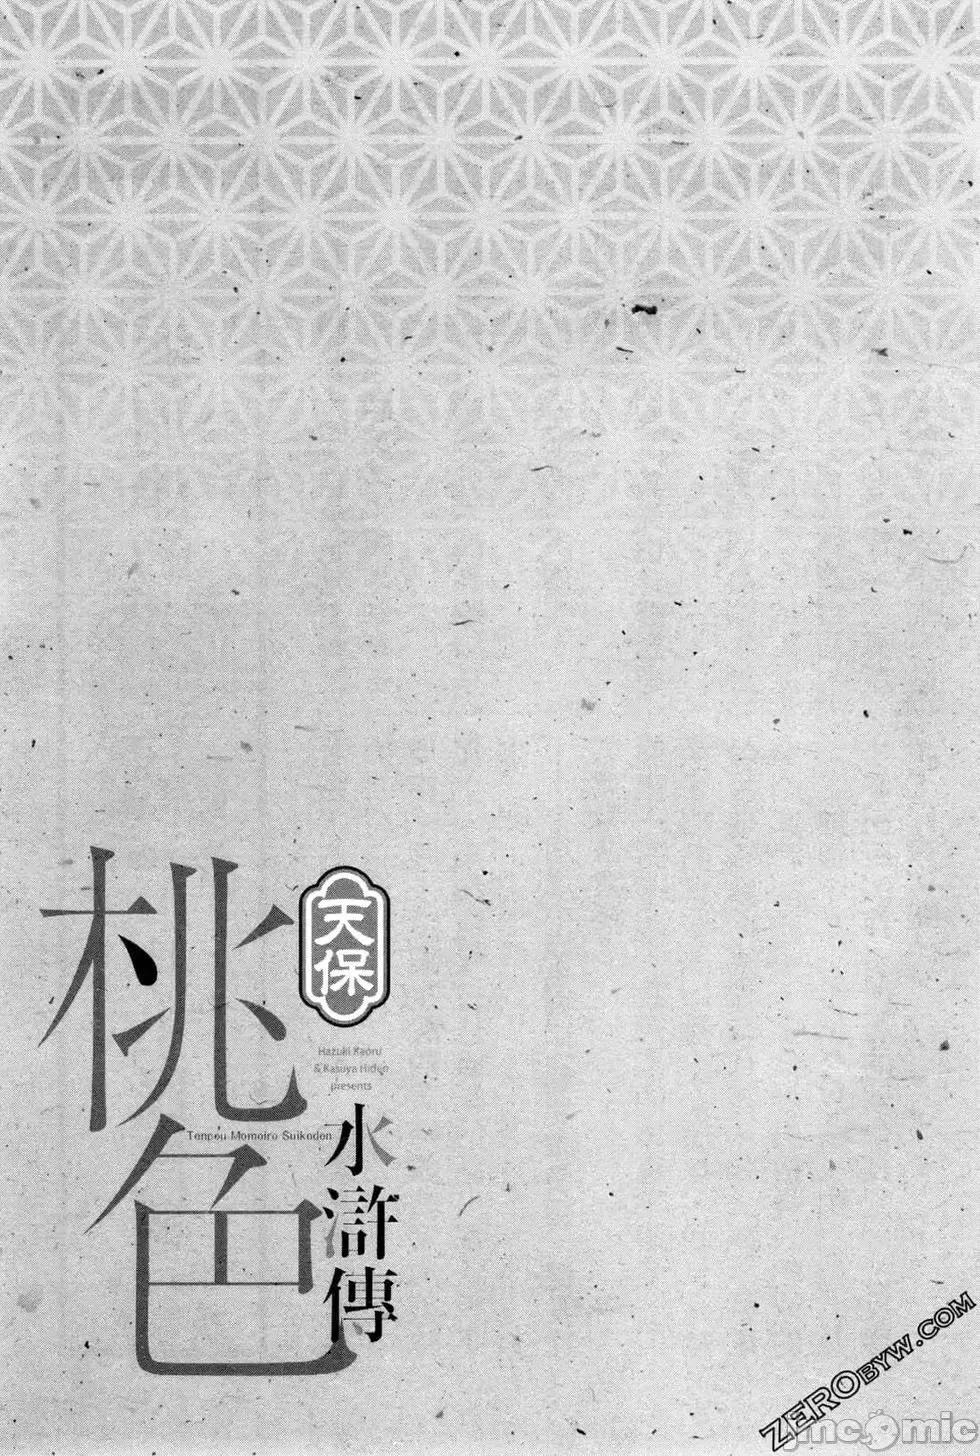 天保
桃色
水滸傳
Hazuki Kaoru
& Kasuya Hiden
presents
Tenpou Momoiro Suikoden
ZEROBYW.COM
mcomic